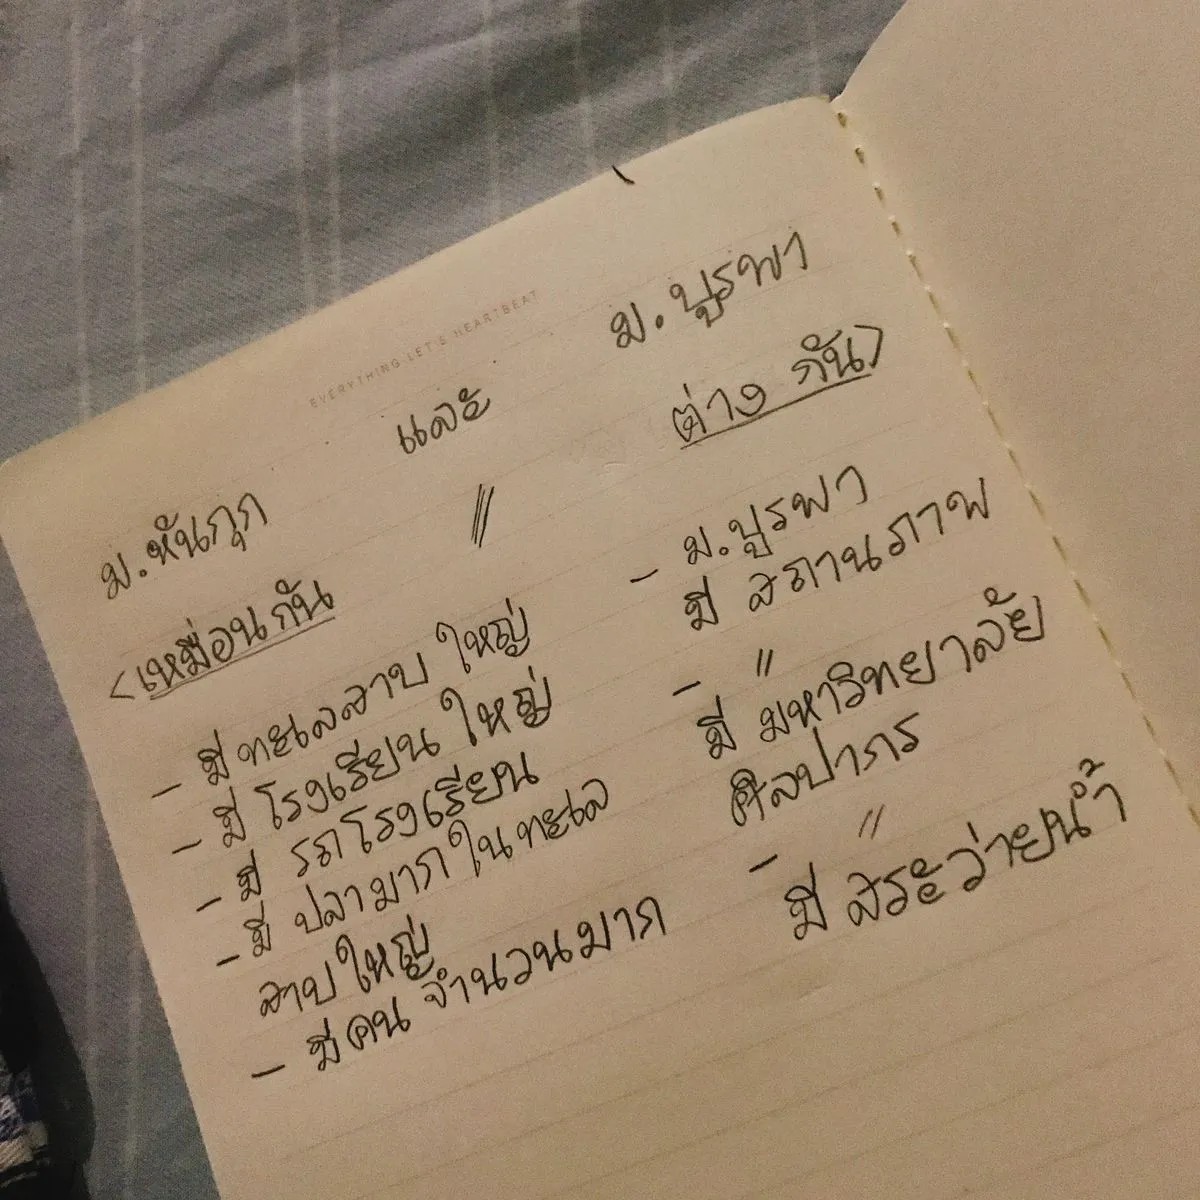 EVERYTHING LET'S HEARTBEAT
ม.หันกุก และ ม.บูรพา
<เหมือนกัน // ต่างกัน>
- มีทะเลสาบใหญ่
- มีโรงเรียนใหญ่
- มี รถโรงเรียน
- มี ปลามากในทะเล
สาบใหญ่
- มีคนจำนวนมาก
- ม.บูรพา
มี สถานภาพ
- "
มี มหาวิทยาลัย
ศิลปากร
- "
มี สระว่ายน้ำ